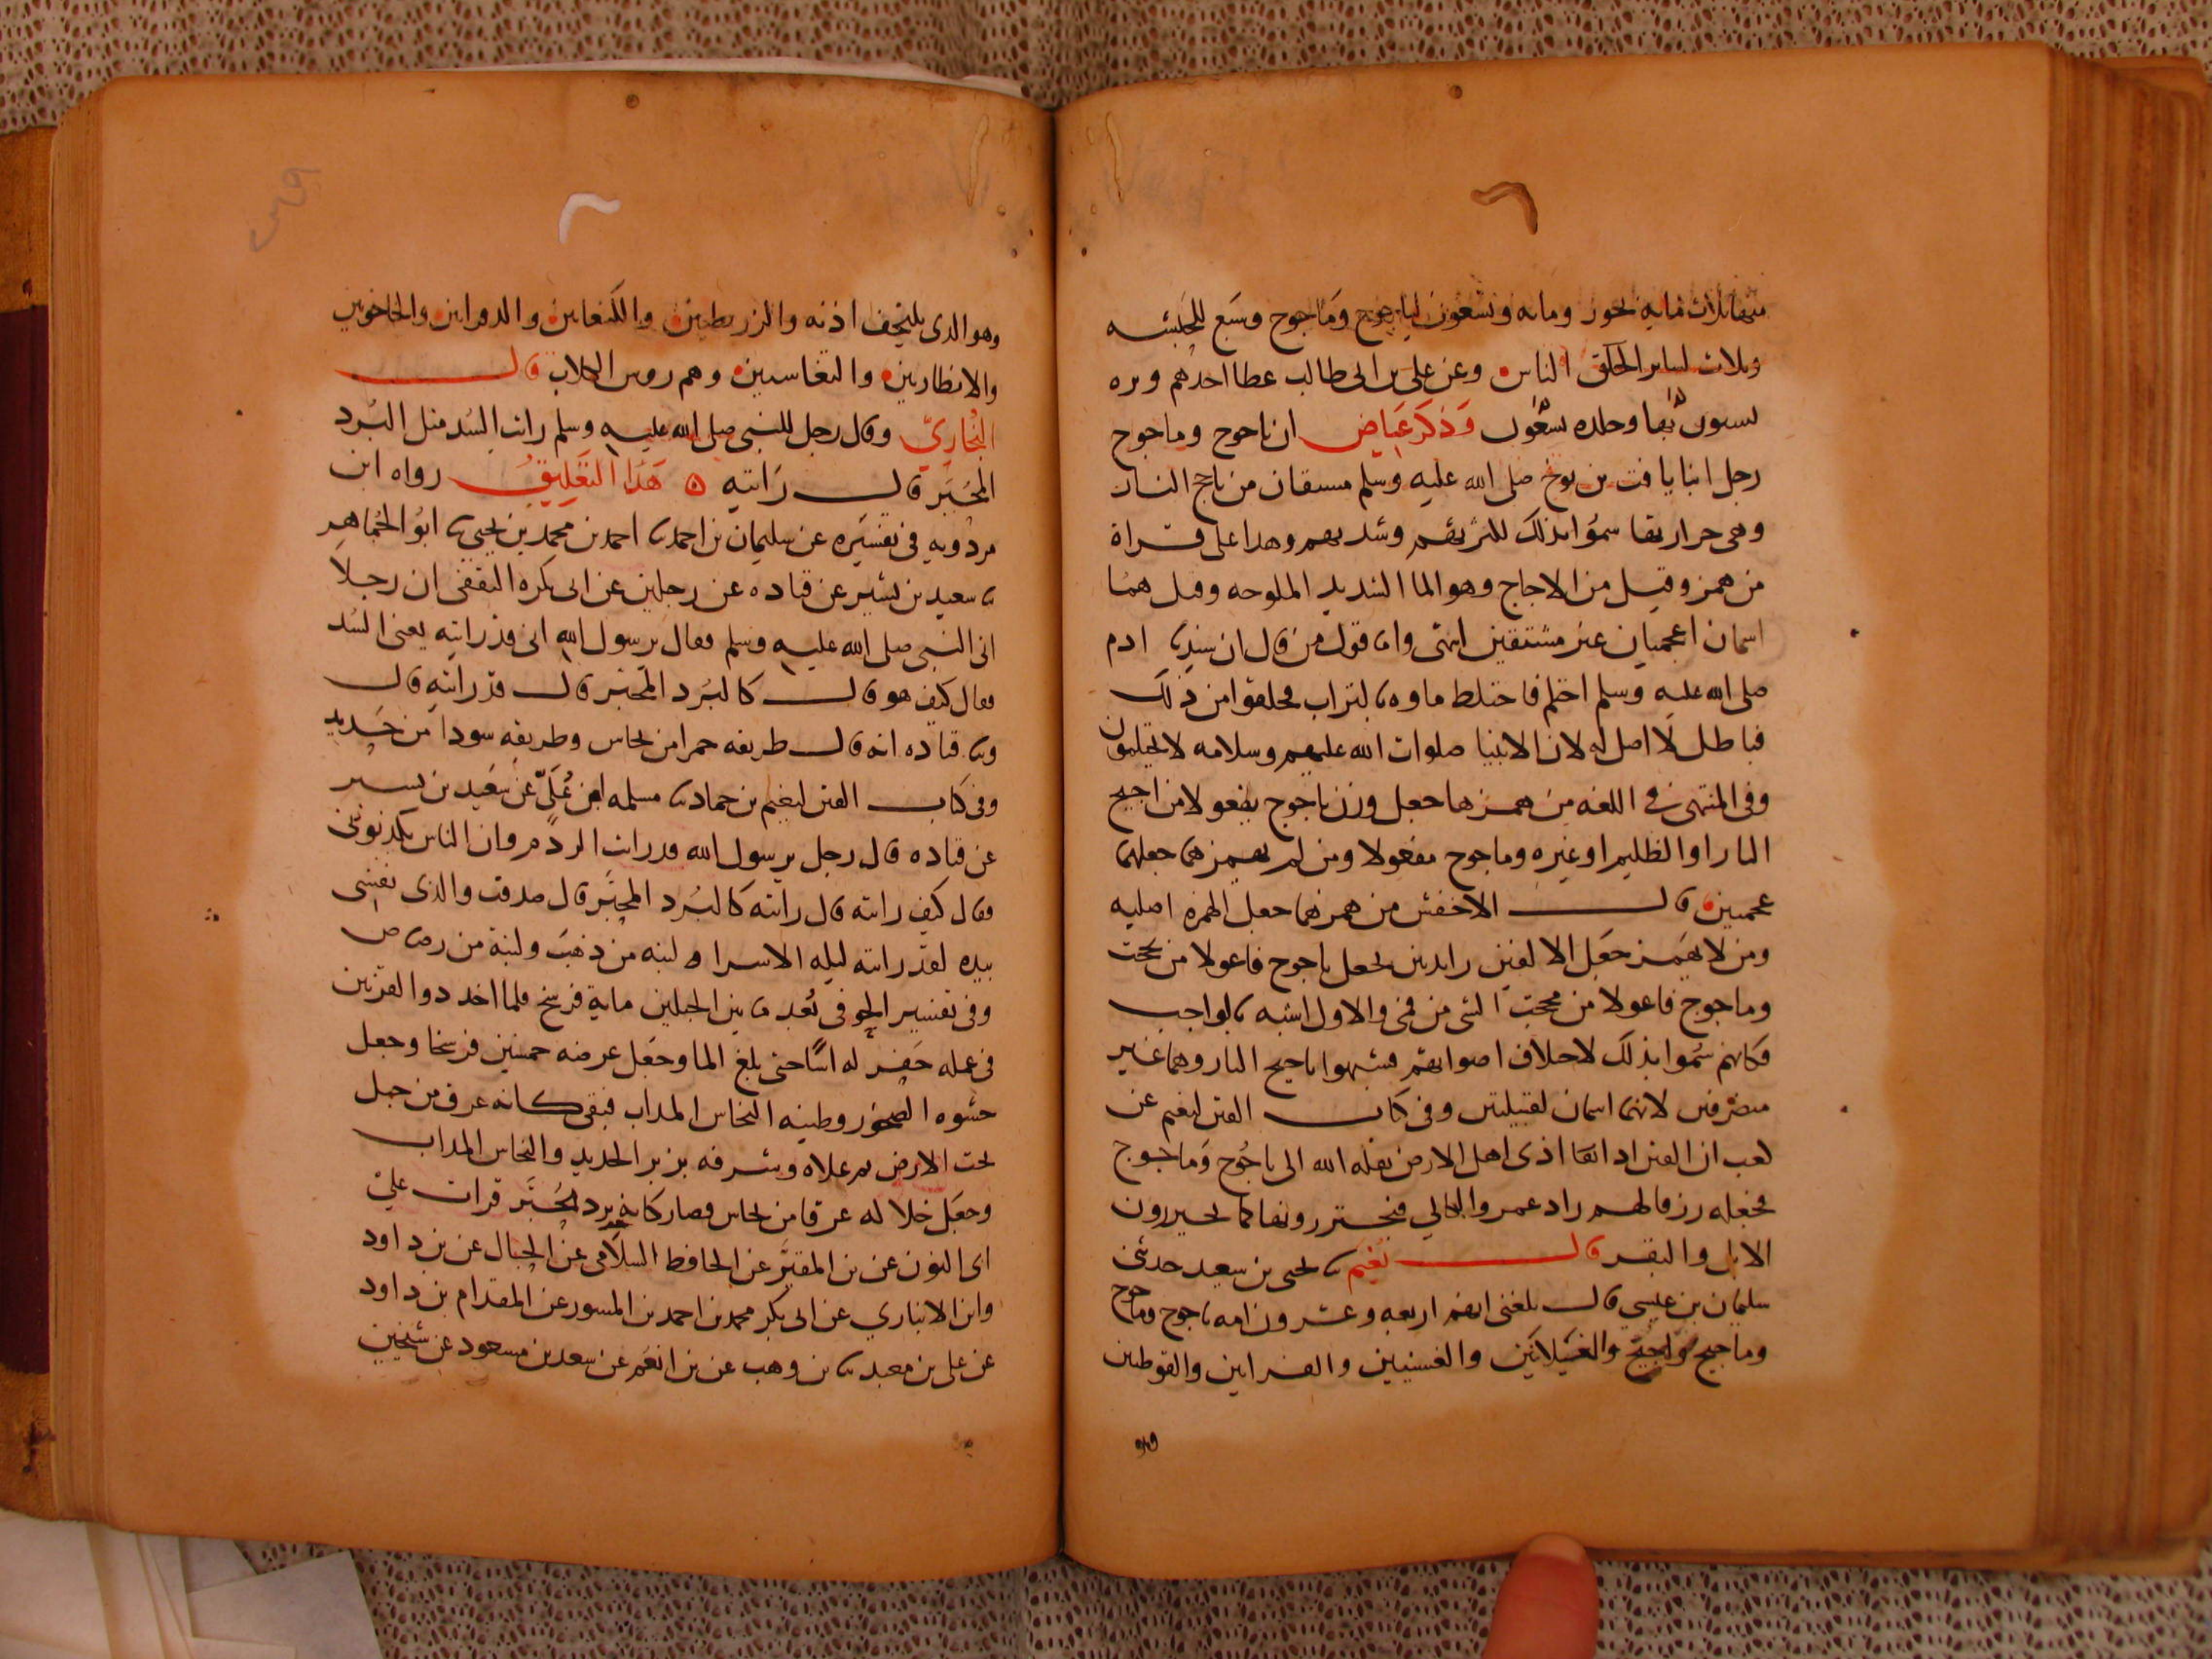 منها ثلاث مايه بحور ومايه وتسعون لياجوج وماجوج وسبع للحبشه
وثلاث لساير الخلق الناس وعن على بن ابى طالب عطا احدهم وبره
وذكر عياض ان ياجوج وماجوج
رجل ابنا يافت بن نوح صلى الله عليه وسلم مشتقان من تاجج النار
وهى حرارتها سموا بذلك لكثرتهم وشدتهم وهذا على قراة
من همز وقيل من الاجاج وهو الما الشديد الملوحه وقيل هما
اسمان اعجميان غير مشتقين انتهى واما قول من قال ان سيدنا ادم
صلى الله عليه وسلم احتلم فاختلط ماوه بالتراب فخلقوا من ذلك
فباطل لا اصل له لان الانبيا صلوات الله عليهم وسلامه لا يحتلمون
وفى المنتهى فى اللغه من همزها جعل وزن ياجوج يفعولا من اجيج
النار او الظليم او غيره وماجوج مفعولا ومن لم يهمزهما جعلهما
عجميين قال الاخفش من همزهما جعل الهمزه اصليه
ومن لا يهمز جعل الالفين زايدتين يجعل ياجوج فاعولا من يججت
وماجوج فاعولا من مججت الشى من فمى والاول اشبه بالواجب
فكانهم سموا بذلك لاختلاف اصواتهم فشبهوا باجيج النار وهما غير
منصرفين لانهما اسمان لقبيلتين وفى كتاب الفتن لنعيم عن
كعب ان التنين اذا اذى اهل الارض نقله الله الى ياجوج وماجوج
فجعله رزقا لهم زاد عمرو البكالي فيجتزرونها كما يجتزرون
الابل والبقر قال نعيم نا يحيى بن سعيد حدثنى
سليمان بن عيسي قال بلغنى انهم اربعه وعشرون امه ياجوج وماجوج
وماجيج واجيج والغيلانين والغسنيين والقرانين والقوطيين
وهو الذى يلتحف اذنه والزريطيين والكنعانين والدفرانين والخاخونين
والانطارنين والتغاسيين وهم روس الكلاب قال
البخاري وقال رجل للنبى صلى الله عليه وسلم رايت السد مثل البرد
المحبر قال رايته هذا التعليق رواه ابن
مردويه فى تفسيره عن سليمان بن احمد نا احمد بن محمد بن يحيى نا ابو الجماهر
نا سعيد بن بشير عن قتاده عن رجلين عن ابى بكره الثقفى ان رجلا
اتى النبى صلى الله عليه وسلم فقال يرسول الله انى قد رايته يعنى السد
فقال كيف هو قال كالبرد المحبر قال قد رايته قال
ونا قتاده انه قال طريقه حمرا من نحاس وطريقه سودا من حديد
وفى كتاب الفتن لنعيم بن حماد نا مسلمه ابن عُلَيّ عن سعيد بن بسير
عن قتاده قال رجل يرسول الله قد رايت الردم وان الناس يكذبونى
فقال كيف رايته قال رايته كالبرد المحبر قال صدقت والذى نفسى
بيده لقد رايته ليله الاسرا لبنه من ذهب ولبنة من رصاص
وفى تفسير الحوفى بُعد ما بين الجبلين ماية فرسخ فلما اخذ ذو القرنين
فى عمله حفر له اسا حتى بلغ الما وجعل عرضه خمسين فرسخا وجعل
حشوه الصخور وطينه النحاس المذاب فبقى كانه عرق من جبل
تحت الارض ثم علاه وشرفه بزبر الحديد والنحاس المذاب
وجعل خلاله عرقا من نحاس فصار كانه برد محبر قرات على
ابى النون عن بن المقير عن الحافظ السلامى عن الحبال عن بن داود
وابن الانباري عن ابى بكر محمد بن احمد بن المسور عن المقدام بن داود
عن على بن معبد نا بن وهب عن بن انعم عن سعد بن مسعود عن شيخين